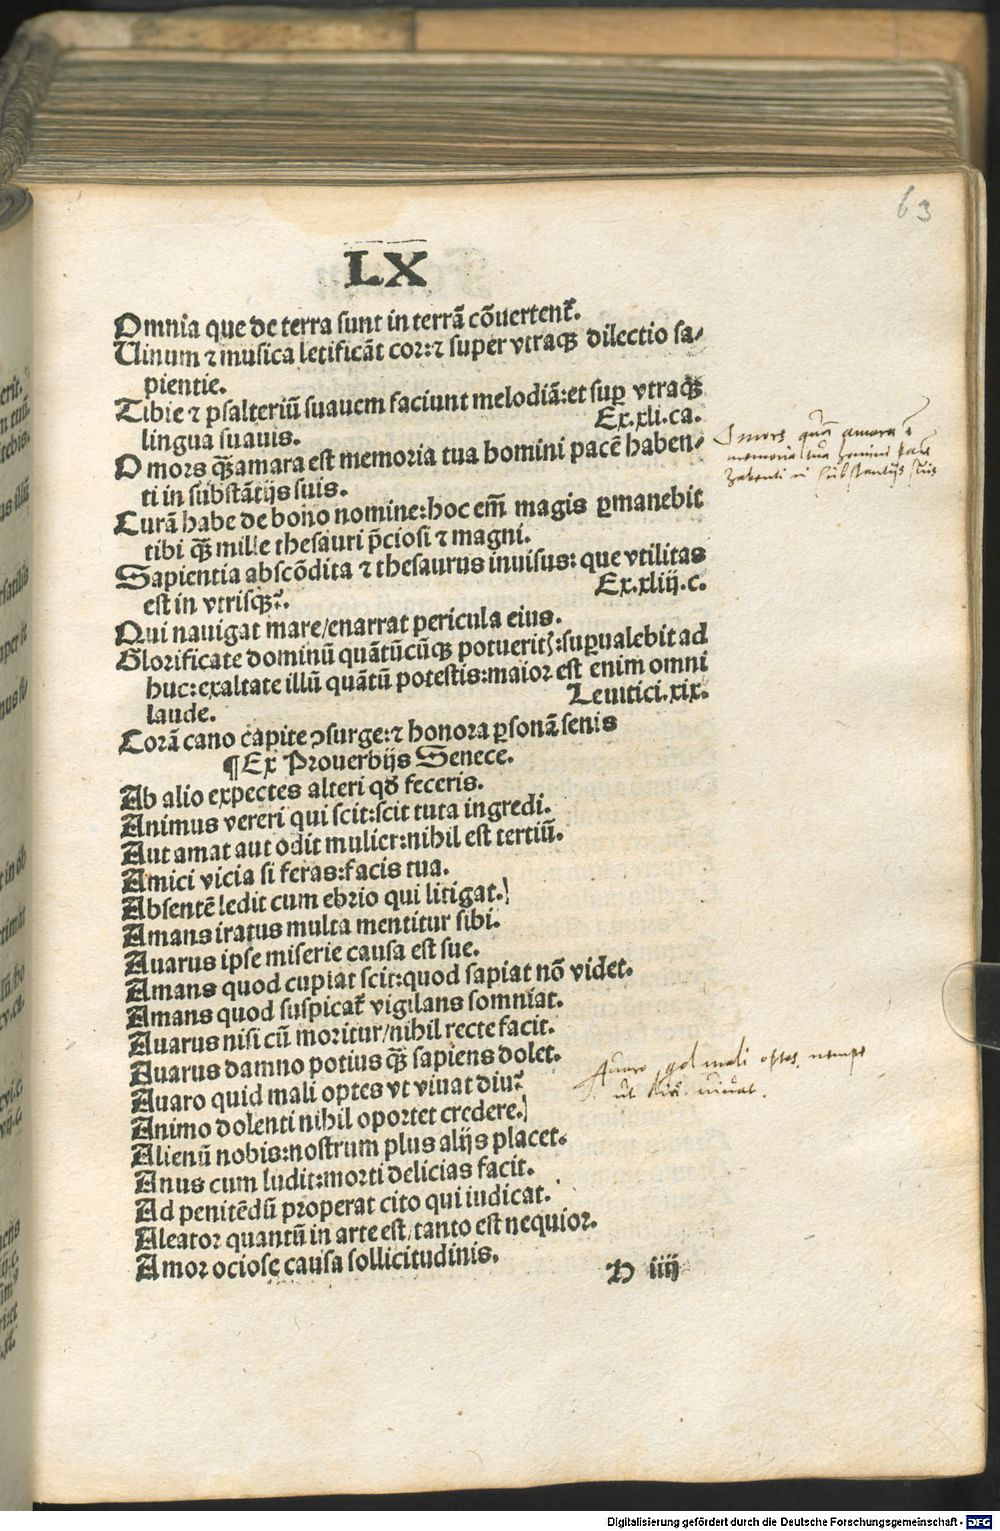 63
LX
Omnia que de terra sunt in terrã cõuertent̃.
Uinum ⁊ musica letificãt cor:⁊ super vtraqꝫ dilectio sa⸗
pientie.
Tibie ⁊ psalteriũ suauem faciunt melodiã:et suꝑ vtraqꝫ
lingua suauis. Ex.xli.ca.
O mors q̃ꝫ amara est memoria tua homini pacẽ haben⸗
ti in substãtijs suis.
Curã habe de bono nomine:hoc em̃ magis ꝑmanebit
tibi q̃ꝫ mille thesauri p̃ciosi ⁊ magni.
Sapientia abscõdita ⁊ thesaurus inuisus: que vtilitas
est in vtrisqꝫ? Ex.xliij.c.
Qui nauigat mare/enarrat pericula eius.
Glorificate dominũ quãtũcũqꝫ potuerit꭭:suꝑualebit ad
huc:exaltate illũ quãtũ potestis:maior est enim omni
laude. Leuitici.xix.
Corã cano capite ↄsurge:⁊ honora ꝑsonã senis
¶Ex Prouerbijs Senece.
Ab alio expectes alteri qđ feceris.
Animus vereri qui scit:scit tuta ingredi.
Aut amat aut odit mulier:nihil est tertiũ.
Amici vicia si feras:facis tua.
Absentẽ ledit cum ebrio qui litigat.
Amans iratus multa mentitur sibi.
Auarus ipse miserie causa est sue.
Amans quod cupiat scit:quod sapiat nõ videt.
Amans quod suspicat̃ vigilans somniat.
Auarus nisi cũ moritur/nihil recte facit.
Auarus damno potius q̃ꝫ sapiens dolet.
Auaro quid mali optes vt viuat diu?
Animo dolenti nihil oportet credere.
Alienũ nobis:nostrum plus alijs placet.
Anus cum ludit:morti delicias facit.
Ad penitẽdũ properat cito qui iudicat.
Aleator quantũ in arte est/tanto est nequior.
Amor ociose causa sollicitudinis.
iiij
O mors quã amara ẽ
memoria tua homini pacẽ
habenti in substantijs suis
Auaro qd mali optes nempe
ut diu uiuat.
Digitalisierung gefördert durch die Deutsche Forschungsgemeinschaft - DFG